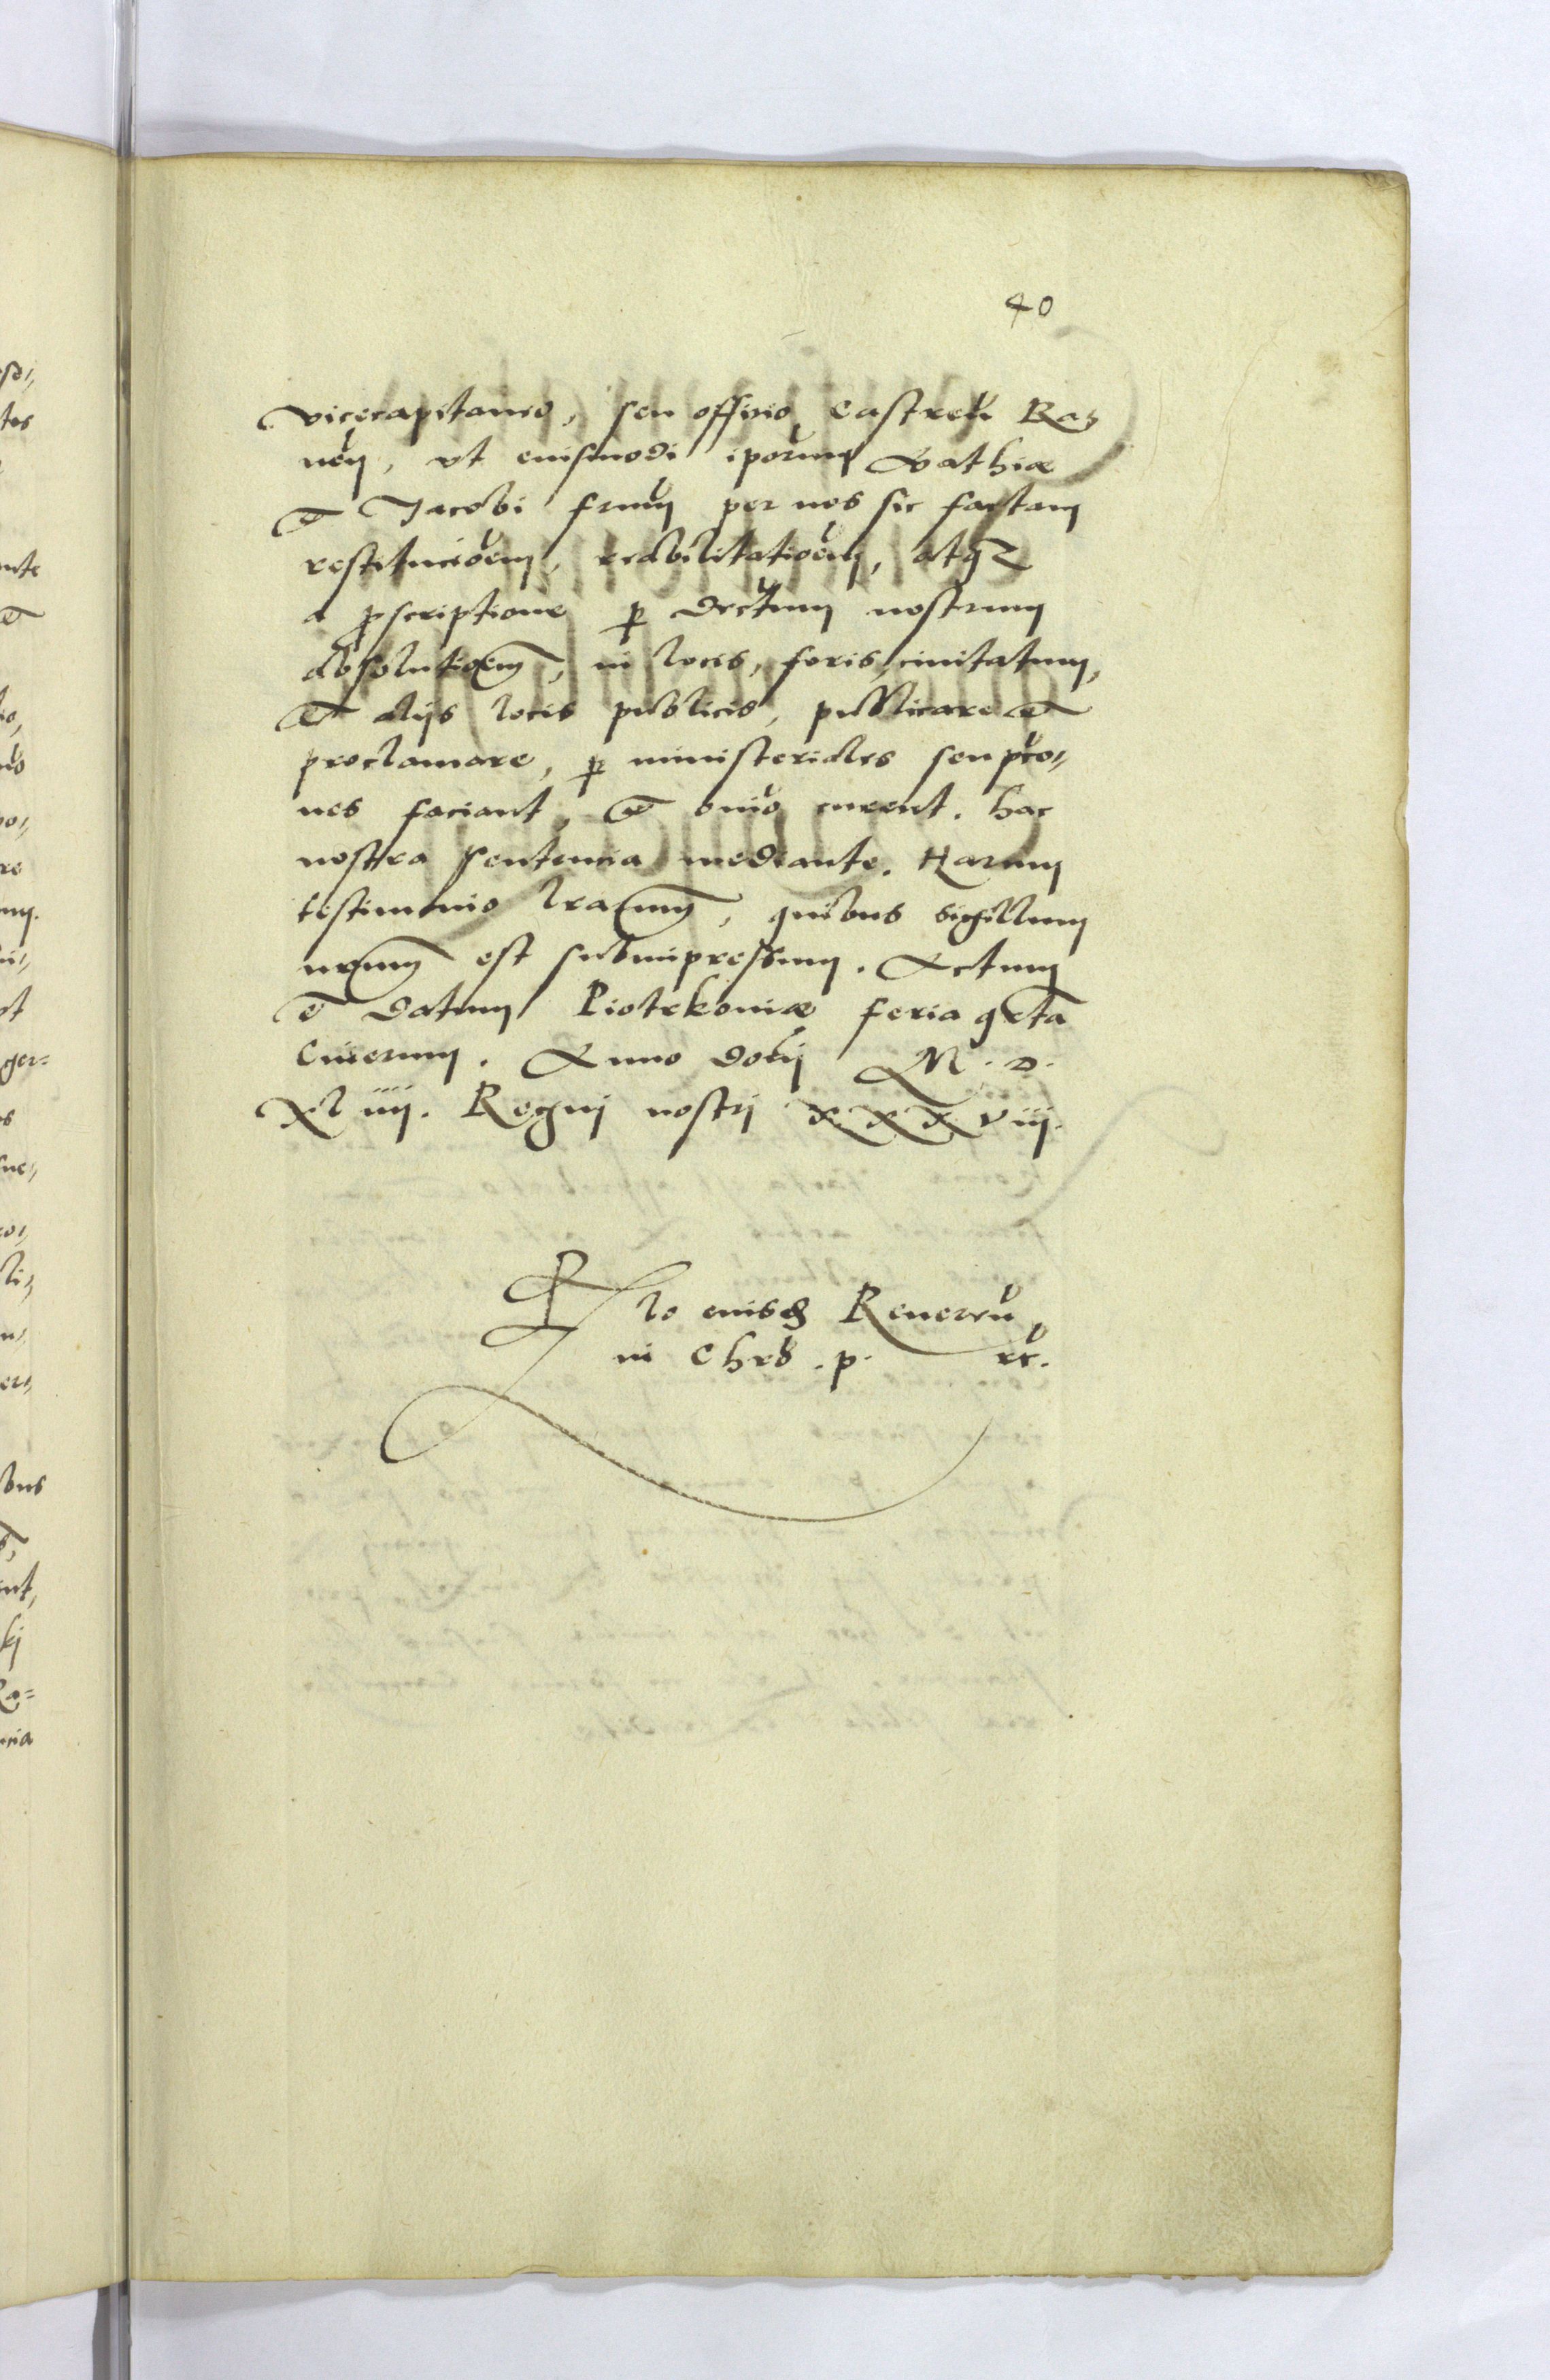 40
vicecapitaneo, seu officio Castren Ra-
uen, vt euismodi iporum Mathiæ
et Jacobi frum per nos sic factam
restitucioem, reabilitatioem, atqz
a pscriptione p dectum nostrum
absolutioem, in locis, foris, ciuitatum,
et alijs locis publicis, publicare et
proclamare, p ministeriales seu pco-
nes faciant, et omo curent. hac
nostra sententia mediante. Harum
testimonio lrarum, quibus sigillum
nrum est subimpressum. Actum
et datum Piotrkoviæ feria qrta
Cinerum. Anno dobij M.D.
XLiiij. Regni nostri xxxviij.
Rlo euisd Reueren
in Chro. p. etc.